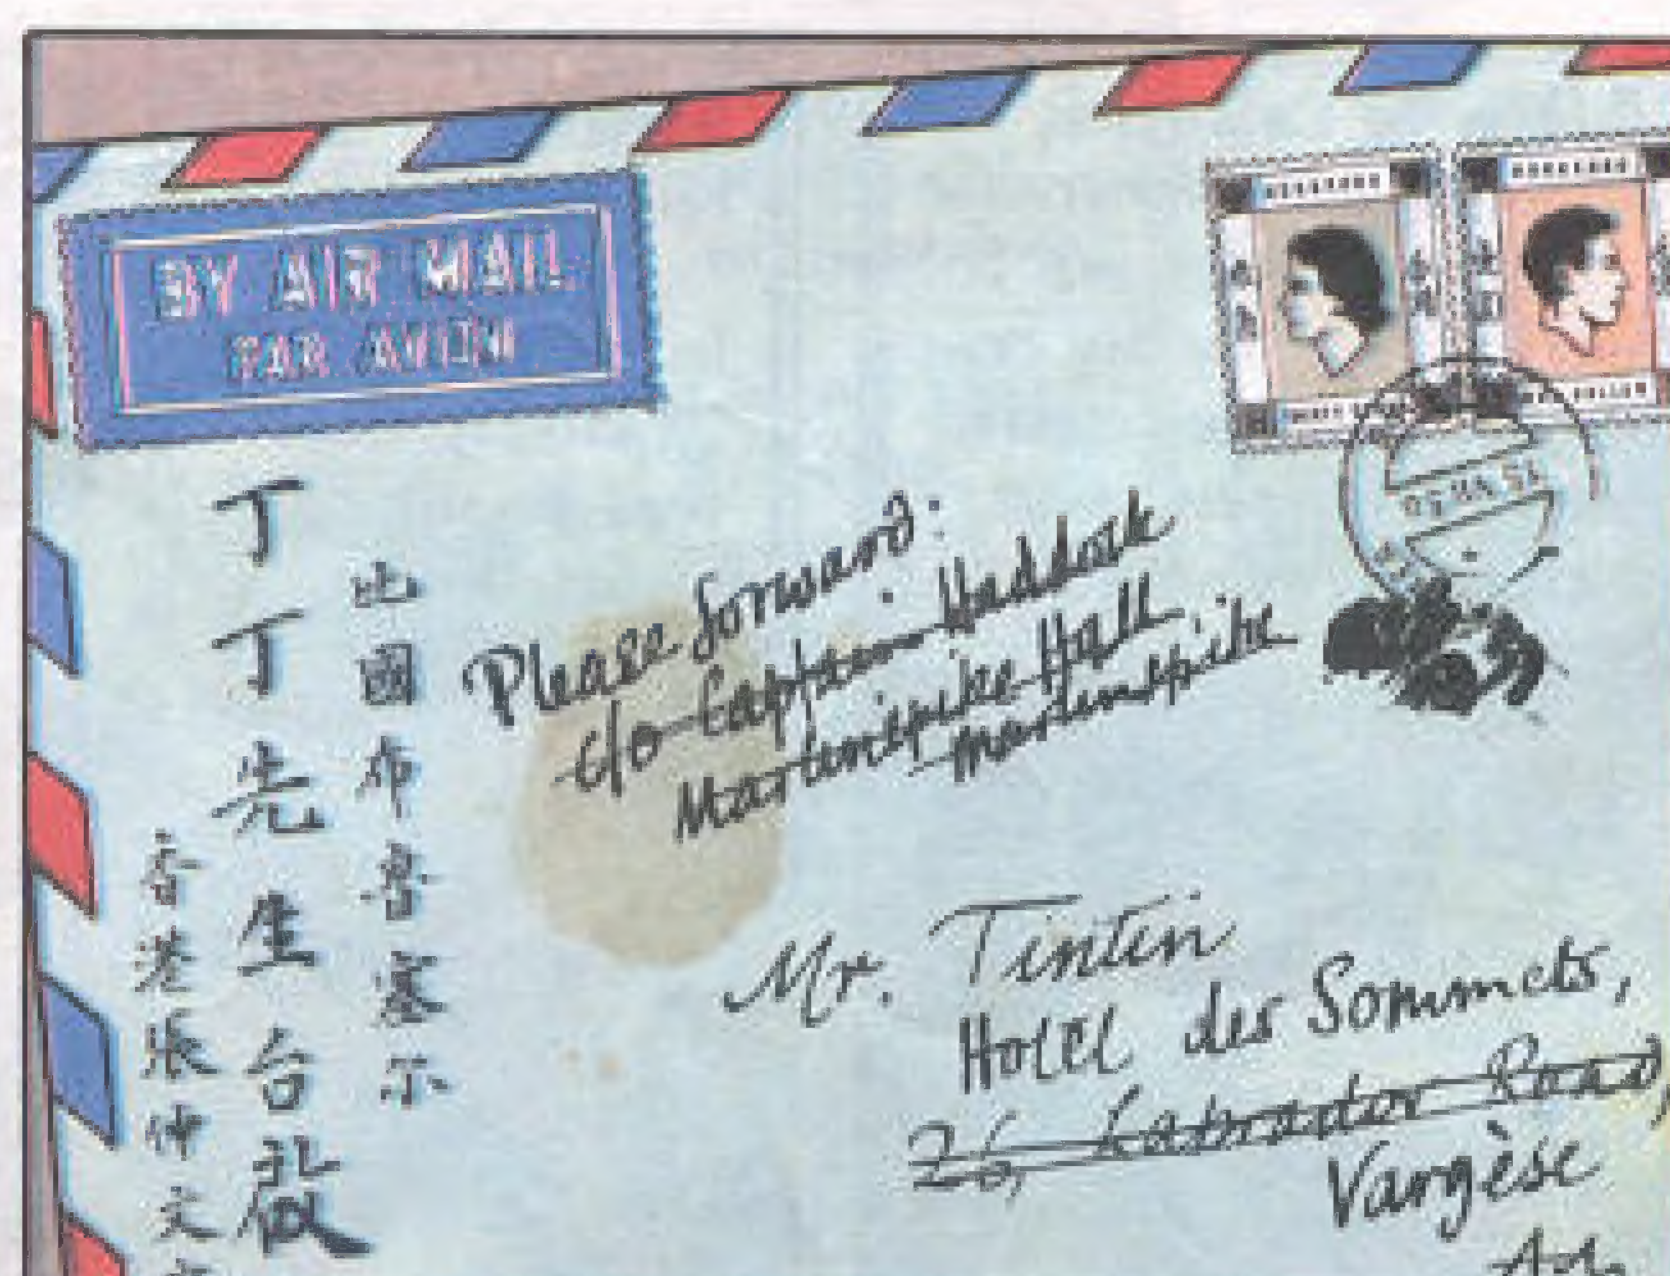 BY AIR MAIL
PAR AVION
比國布魯塞尔
丁丁先生台啟
香港張仲文
Please forward:
c/o Captain Haddock
Marlinspike Hall,
Marlinspike
Mr. Tintin
Hotel des Sommets,
26, Labrador Road,
Vargèse